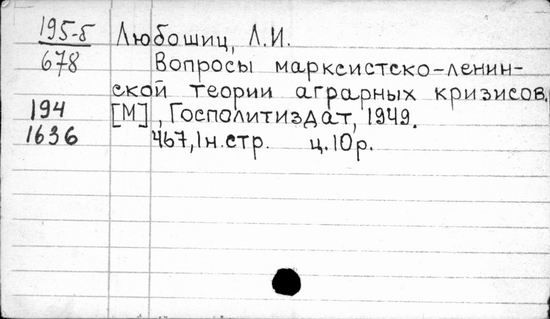 195-5 Любошиц, Л.И.
678 Вопросы марксистско-ленин-
ской теории аграрных кризисов.
194 [М], Госполитиздат, 1949.
1636 467,1н.стр. ц.10р.